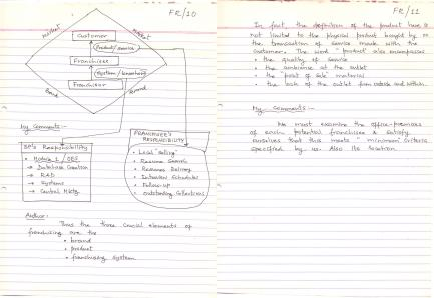 FR/10
market
market
Customer
Product/service
Franchisee
System/knowhow
Franchisor
brand
My Comments:-
Responsibility
Module 1 /
→ Database Creation
→ R&D
→ Systems
→ Central Mktg
FRANCHISEE'S
RESPONSIBILITY
• Local "Selling"
• Resume Search
• Resumes Delivery
• Interview Schedules
• Follow-up
• Outstanding Collections
Author:-
Thus the three crucial elements of
franchising are the
• brand
• product
• franchising system
FR/11
In fact the definition of the product here is
not limited to the physical product bought by or
the transaction of service made with the
customer. The word "product" also encompasses
• the quality of service
• the ambience at the outlet
• the "point of sale" materials
• the look of the outlet from outside and within.
My Comments:-
We must examine the office-premises
of each potential franchisee & satisfy
ourselves that this meets "minimum" criteria
specified by us. Also its location.